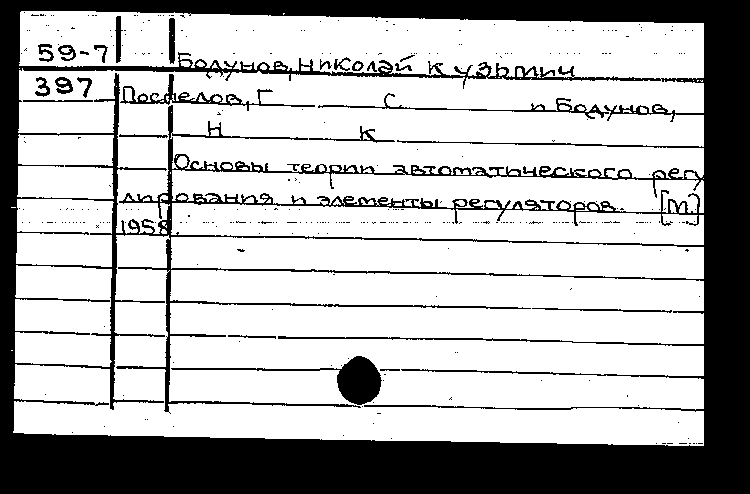 59-7 Бодунов, Николай Кузьмич
397 Поспелов, Г С и Бодунов,
Н К
Основы теории автоматического регу
лирования и элементы регуляторов. [М]
1958